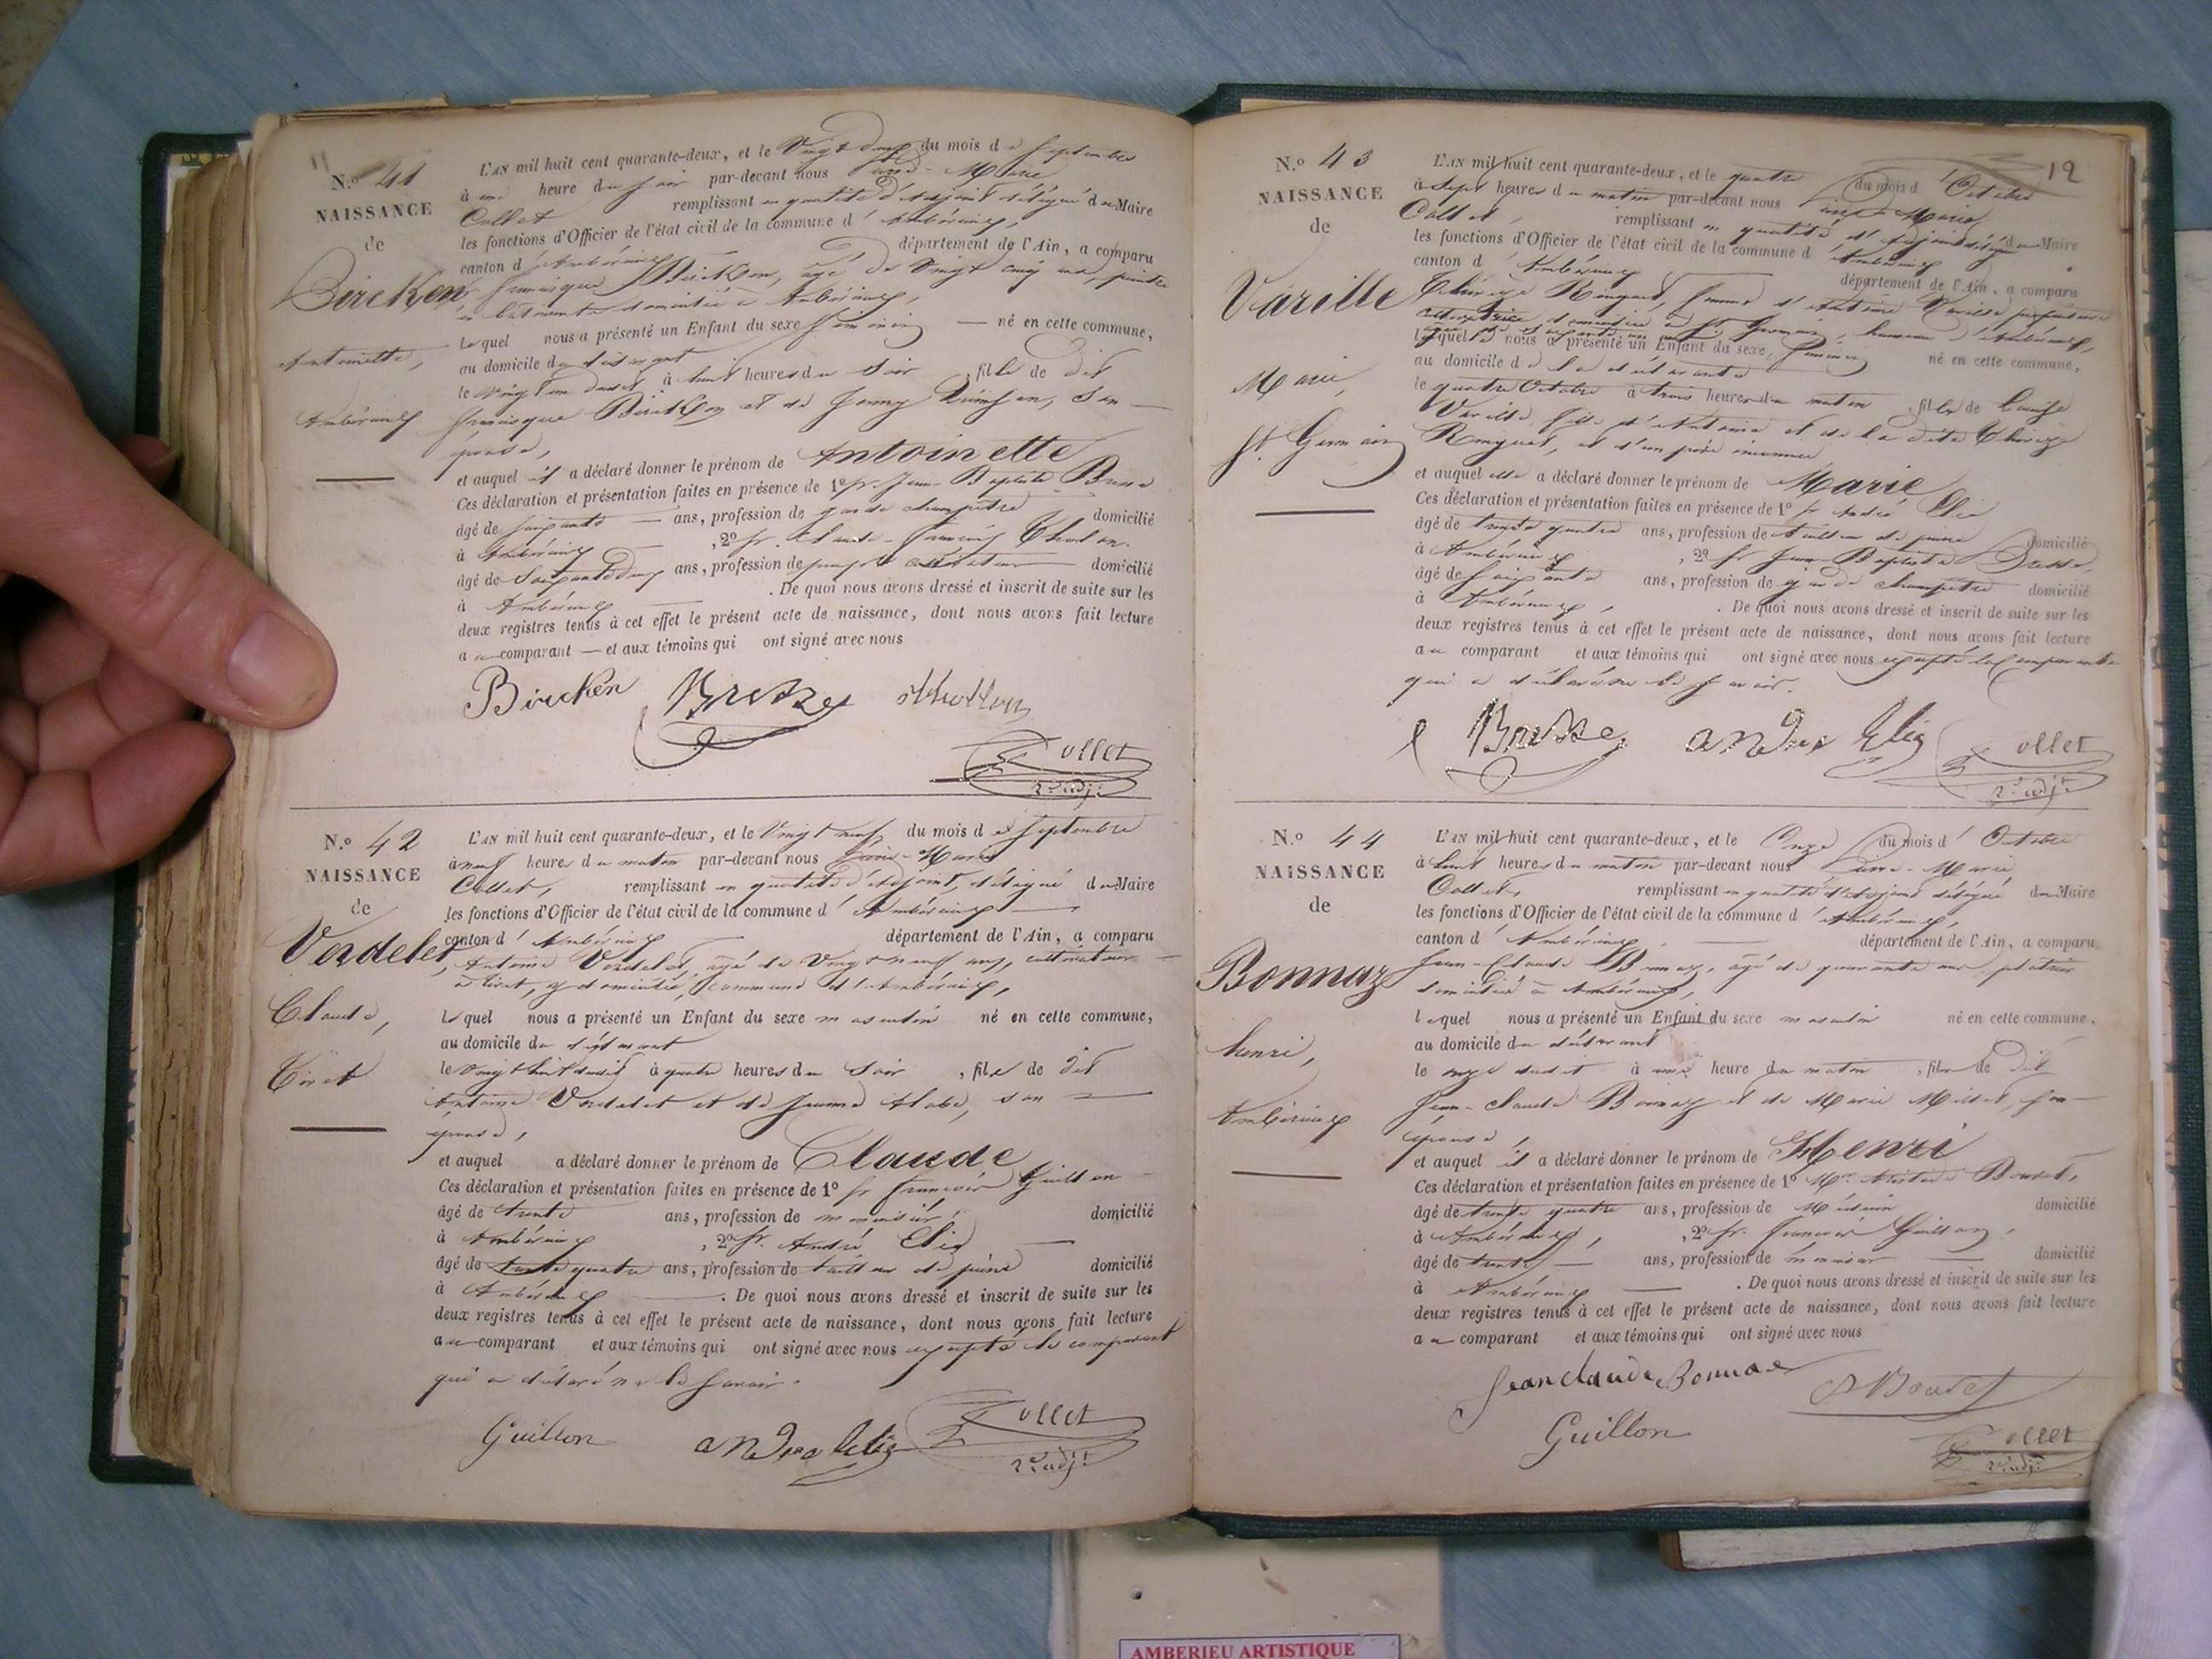 N.o 41
NAISSANCE
de
Bircken
Antoinette,
Ambérieux
L'AN mil huit cent quarante-deux, et le Vingt deux du mois de Septembre
à une heure du Soir par-devant nous Marie
Collet remplissant en qualité d'adjoint délégué du Maire
les fonctions d'Officier de l'état civil de la commune d'Ambérieux,
canton d'Ambérieux département de l'Ain, a comparu
françois Bircken, âgé de Vingt cinq ans, peintre
en bâtiments domicilié à Ambérieux,
lequel nous a présenté un Enfant du sexe féminin — né en cette commune,
au domicile du déclarant
le Vingt un dudit à huit heures du Soir, fille de dit
Bircken et de Jenny, Son
épouse,
et auquel il a déclaré donner le prénom de Antoinette
Ces déclaration et présentation faites en présence de 1o Sr. Jean-Baptiste
âgé de Soixante — ans, profession de garde champêtre domicilié
à Ambérieux, 2o Sr. Claude
âgé de ans, profession de domicilié
à Ambérieux. De quoi nous avons dressé et inscrit de suite sur les
deux registres tenus à cet effet le présent acte de naissance, dont nous avons fait lecture
au comparant — et aux témoins qui ont signé avec nous
Bircken
Collet
2e adjt
N.o 42
NAISSANCE
de
Verdelet
Claude,
Tiret
L'AN mil huit cent quarante-deux, et le Vingt neuf du mois de Septembre
à neuf heures du matin par-devant nous Marie
Collet, remplissant en qualité d'adjoint, délégué du Maire
les fonctions d'Officier de l'état civil de la commune d'Ambérieux
canton d'Ambérieux département de l'Ain, a comparu
Antoine Verdelet, âgé de Vingt neuf ans, cultivateur
à tiret, y domicilié, commune d'Ambérieux,
lequel nous a présenté un Enfant du sexe masculin né en cette commune,
au domicile du déclarant
le Vingt huit dudit à quatre heures du Soir, fils de dit
Antoine Verdelet et de Jeanne, son
épouse,
et auquel a déclaré donner le prénom de Claude
Ces déclaration et présentation faites en présence de 1o Sr François Guillon
âgé de trente ans, profession de menuisier domicilié
à Ambérieux, 2o Sr. André Elie
âgé de trente quatre ans, profession de tailleur de pierre domicilié
à Ambérieux. De quoi nous avons dressé et inscrit de suite sur les
deux registres tenus à cet effet le présent acte de naissance, dont nous avons fait lecture
au comparant et aux témoins qui ont signé avec nous excepté le comparant
qui a déclaré ne le Savoir.
Guillon
Collet
2e adjt
12
N.o 43
NAISSANCE
de
Varille
Marie,
St. Germain
L'AN mil huit cent quarante-deux, et le quatre du mois d'Octobre
à Sept heures du matin par-devant nous Marie
Collet, remplissant en qualité d'adjoint délégué du Maire
les fonctions d'Officier de l'état civil de la commune d'Ambérieux
canton d'Ambérieux département de l'Ain, a comparu
femme d'Antoine Varille
cultivatrice domiciliée à St Germain, commune d'Ambérieux,
lequel nous a présenté un Enfant du sexe féminin né en cette commune,
au domicile de la déclarante
le quatre Octobre à trois heures du matin, fille de Louise
Varille fille d'Antoine et de la dite
et d'un père inconnu
et auquel elle a déclaré donner le prénom de Marie
Ces déclaration et présentation faites en présence de 1o Sr André Elie
âgé de trente quatre ans, profession de tailleur de pierre domicilié
à Ambérieux, 2o Sr Jean Baptiste
âgé de Soixante ans, profession de garde champêtre domicilié
à Ambérieux, De quoi nous avons dressé et inscrit de suite sur les
deux registres tenus à cet effet le présent acte de naissance, dont nous avons fait lecture
au comparant et aux témoins qui ont signé avec nous excepté la comparante
qui a déclaré ne le Savoir.
Collet
2e adjt
N.o 44
NAISSANCE
de
Bonnaz
henri,
Ambérieux
L'AN mil huit cent quarante-deux, et le Onze du mois d'Octobre
à huit heures du matin par-devant nous Marie
Collet, remplissant en qualité d'adjoint délégué du Maire
les fonctions d'Officier de l'état civil de la commune d'Ambérieux,
canton d'Ambérieux département de l'Ain, a comparu
Jean-Claude Bonnaz, âgé de quarante ans, plâtrier
domicilié à Ambérieux,
lequel nous a présenté un Enfant du sexe masculin né en cette commune,
au domicile du déclarant
le onze dudit à une heure du matin, fils de dit
Jean-Claude Bonnaz et de Marie Millet, Son
épouse,
et auquel il a déclaré donner le prénom de Henri
Ces déclaration et présentation faites en présence de 1o Mr.
âgé de trente quatre ans, profession de Médecin domicilié
à Ambérieux, 2o Sr. François Guillon,
âgé de trente — ans, profession de menuisier domicilié
à Ambérieux. De quoi nous avons dressé et inscrit de suite sur les
deux registres tenus à cet effet le présent acte de naissance, dont nous avons fait lecture
au comparant et aux témoins qui ont signé avec nous
Jean claude Bonnaz
Guillon
Collet
2e adjt
AMBERIEU ARTISTIQUE